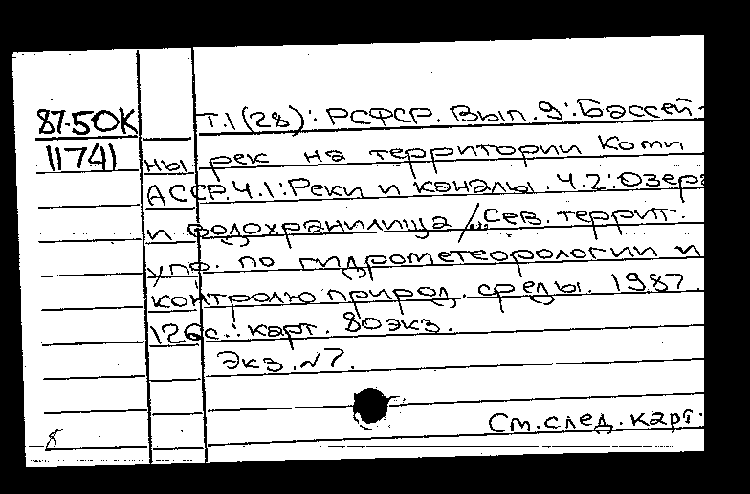 87-50К Т.1(28): РСФСР. Вып.9: Бассей-
1174) ны рек на территории Коми
АССР. Ч.1: Реки и каналы. Ч.2: Озера
и водохранилища /... Сев. террит.
упр. по гидрометеорологии и
контролю природ. среды. 1987.
126с.: карт. 80экз.
Экз. №7.
См. след. карт.
8